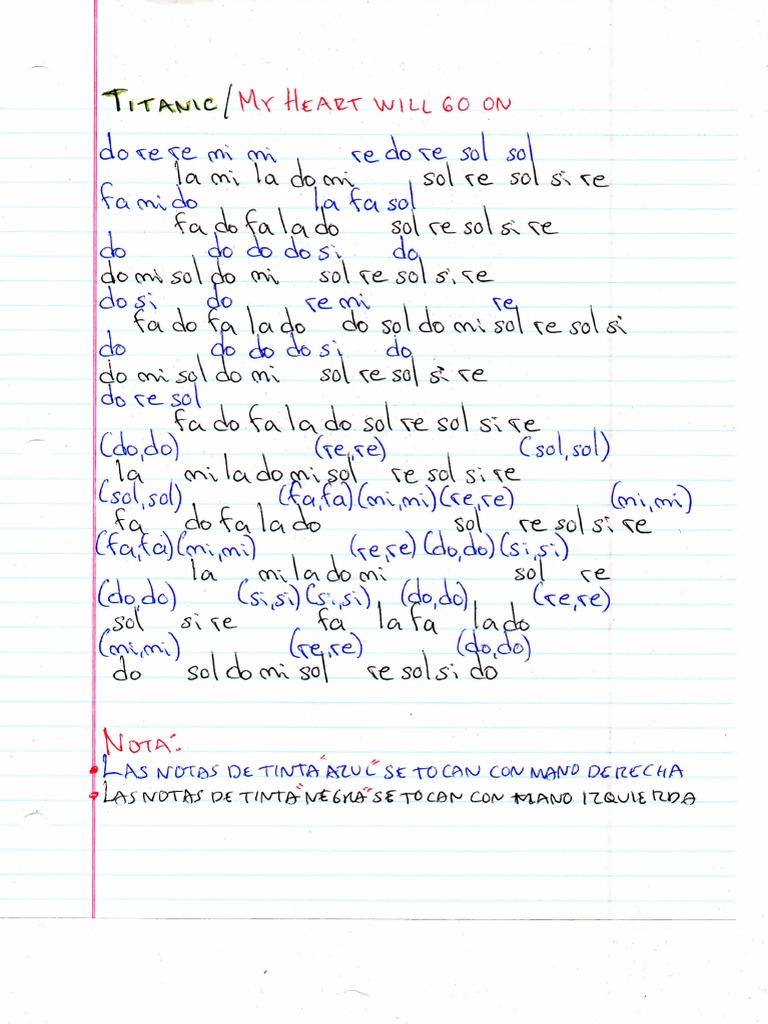 TITANIC / MY HEART WILL GO ON
do re re mi mi re do re sol sol
la mi la do mi sol re sol si re
fa mi do la fa sol
fa do fa la do sol re sol si re
do do do do si do
do mi sol do mi sol re sol si re
do si do re mi re
fa do fa la do do sol do mi sol re sol si
do do do do si do
do mi sol do mi sol re sol si re
do re sol
fa do fa la do sol re sol si re
(do,do) (re,re) (sol,sol)
la mi la do mi sol re sol si re
(sol,sol) (fa,fa)(mi,mi)(re,re) (mi,mi)
fa do fa la do sol re sol si re
(fa,fa)(mi,mi) (re,re)(do,do)(si,si)
la mi la do mi sol re
(do,do) (si,si)(si,si) (do,do) (re,re)
sol si re fa la fa la do
(mi,mi) (re,re) (do,do)
do sol do mi sol re sol si do
NOTA:
• LAS NOTAS DE TINTA "AZUL" SE TOCAN CON MANO DERECHA
• LAS NOTAS DE TINTA "NEGRA" SE TOCAN CON MANO IZQUIERDA